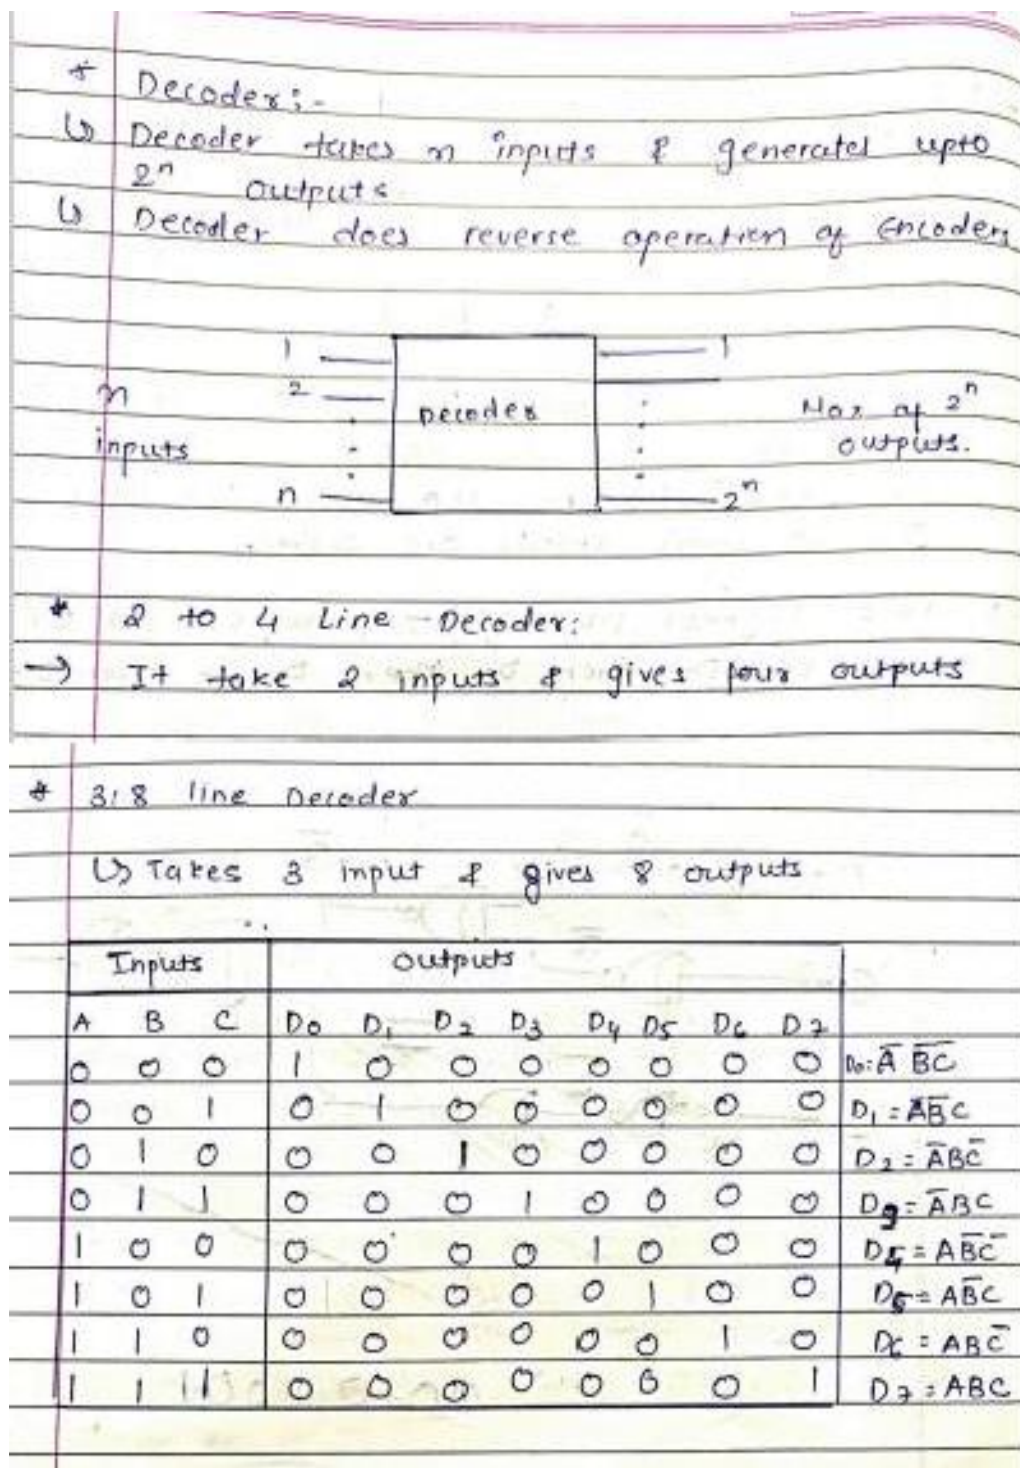 * Decoder:-
↳ Decoder takes n inputs & generates upto
2ⁿ outputs
↳ Decoder does reverse operation of Encoders
1 1
2
n Decoder Max of 2ⁿ
inputs outputs.
n 2ⁿ
* 2 to 4 Line Decoder:
→ It take 2 inputs & gives four outputs
* 3:8 line Decoder
↳ Takes 3 input & gives 8 outputs
Inputs Outputs
A B C D₀ D₁ D₂ D₃ D₄ D₅ D₆ D₇
0 0 0 1 0 0 0 0 0 0 0 D₀ = A̅ B̅C̅
0 0 1 0 1 0 0 0 0 0 0 D₁ = A̅B̅C
0 1 0 0 0 1 0 0 0 0 0 D₂ = A̅BC̅
0 1 1 0 0 0 1 0 0 0 0 D₃ = A̅BC
1 0 0 0 0 0 0 1 0 0 0 D₄ = AB̅C̅
1 0 1 0 0 0 0 0 1 0 0 D₅ = AB̅C
1 1 0 0 0 0 0 0 0 1 0 D₆ = ABC̅
1 1 1 0 0 0 0 0 0 0 1 D₇ = ABC